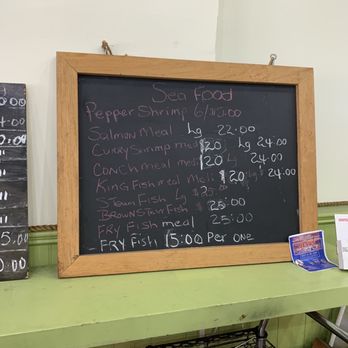 00
4.00
0.00
5.00
0:00
Sea Food
Pepper Shrimp 6/$5:00
Salmon Meal Lg 22:00
Curry Shrimp med $20 Lg 24.00
Conch meal med $20 Lg 24.00
King Fish meal Med $20 Lg $24.00
Steam Fish Lg $25.00
Brown Stew Fish $25:00
Fry Fish meal 25:00
Fry Fish 15:00 Per one